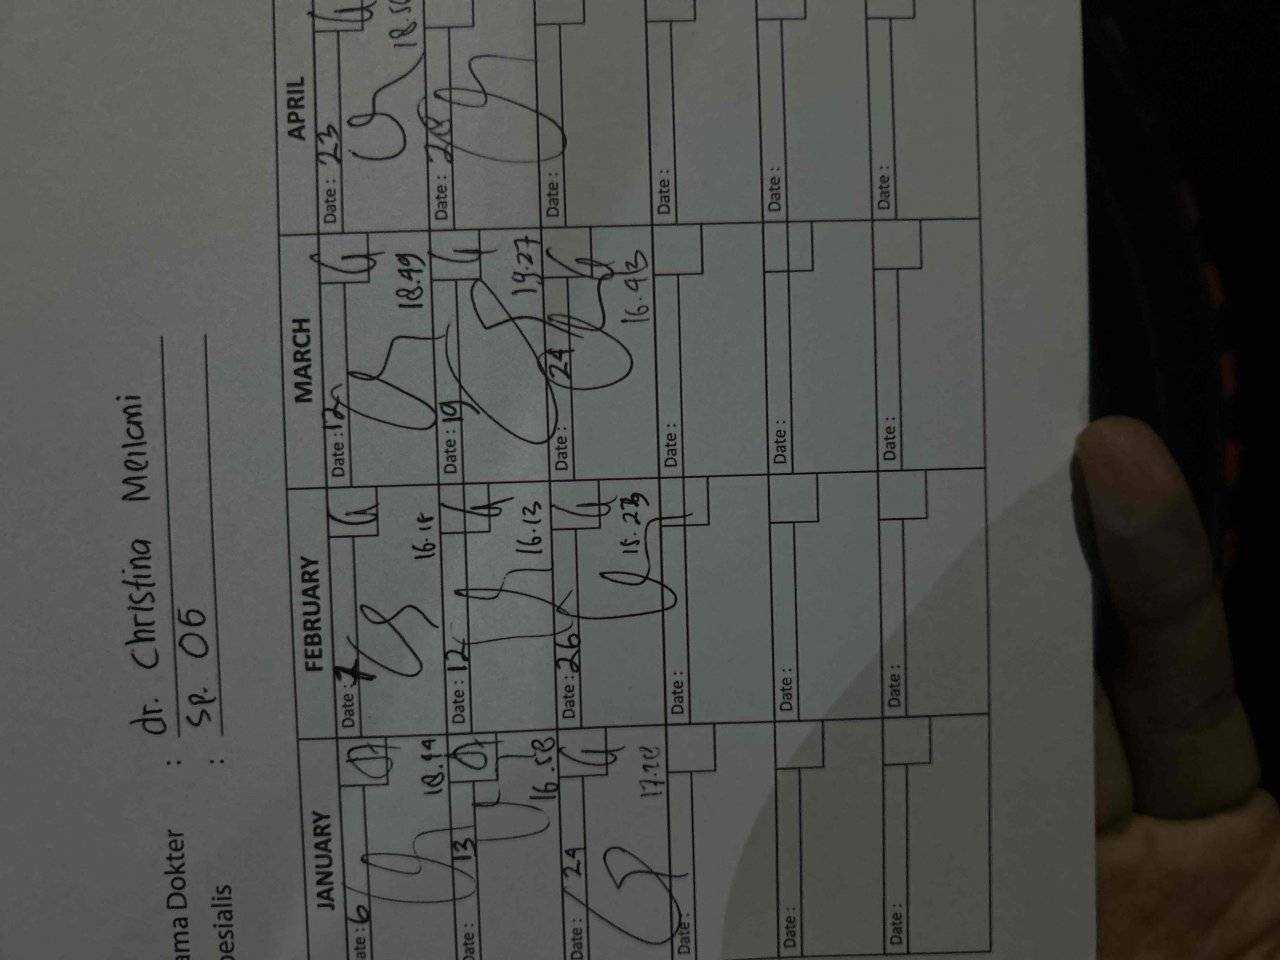 ama Dokter : dr. Christina Meilani
pesialis : Sp. OG
JANUARY FEBRUARY MARCH APRIL
ate : 6 Date : 7 Date : 12 Date : 23
18.44 16.18 18.49 18.50
13 Date : 12 Date : 19 Date : 28
16.58 16.13 19.27
Date : 24 Date : 26 Date : 24 Date :
17.28 15.23 16.43
Date : Date : Date : Date :
Date : Date : Date : Date :
Date : Date : Date : Date :